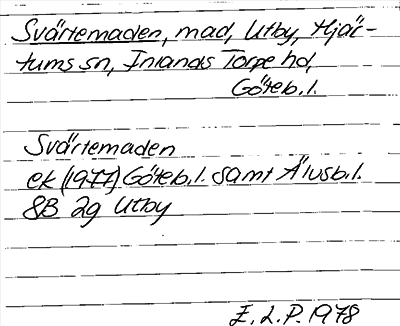 Svärtemaden, mad, Utby, Hjär-
tums sn, Inlands Torpe hd,
Göteb.l.
Svärtemaden
ek (1977) Göteb.l. samt Älvsb.l.
8B 2g Utby
E.L.P. 1978